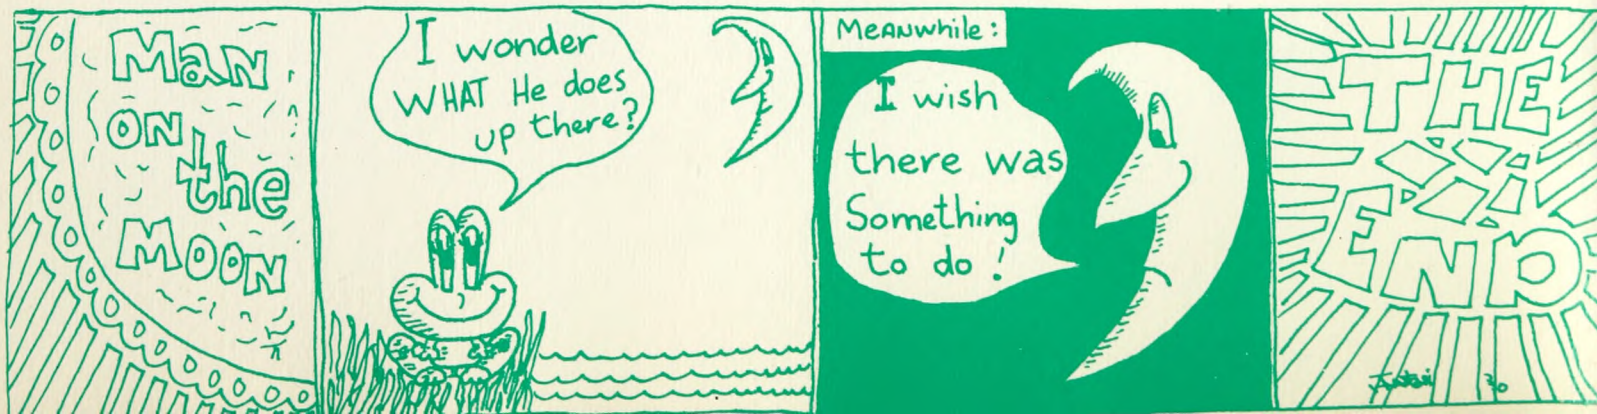 Man
on
the
Moon
I wonder
WHAT He does
up there?
Meanwhile:
I wish
there was
Something
to do!
THE
END